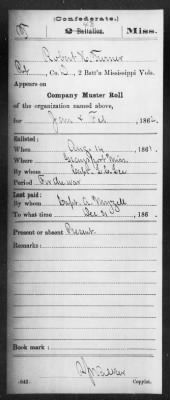 (Confederate.)
T 2 48 Battalion. Miss.
Robert Turner
Pvt, Co. , 2 Batt'n Mississippi Vols.
Appears on
Company Muster Roll
of the organization named above,
for Jan & Feb, 186
Enlisted:
When Aug 14, 186
Where Graysport Miss.
By whom Capt.
Period For the war
Last paid:
By whom Capt. A.
To what time Dec 31, 186
Present or absent Present
Remarks:
Book mark:
(642) Copyist.